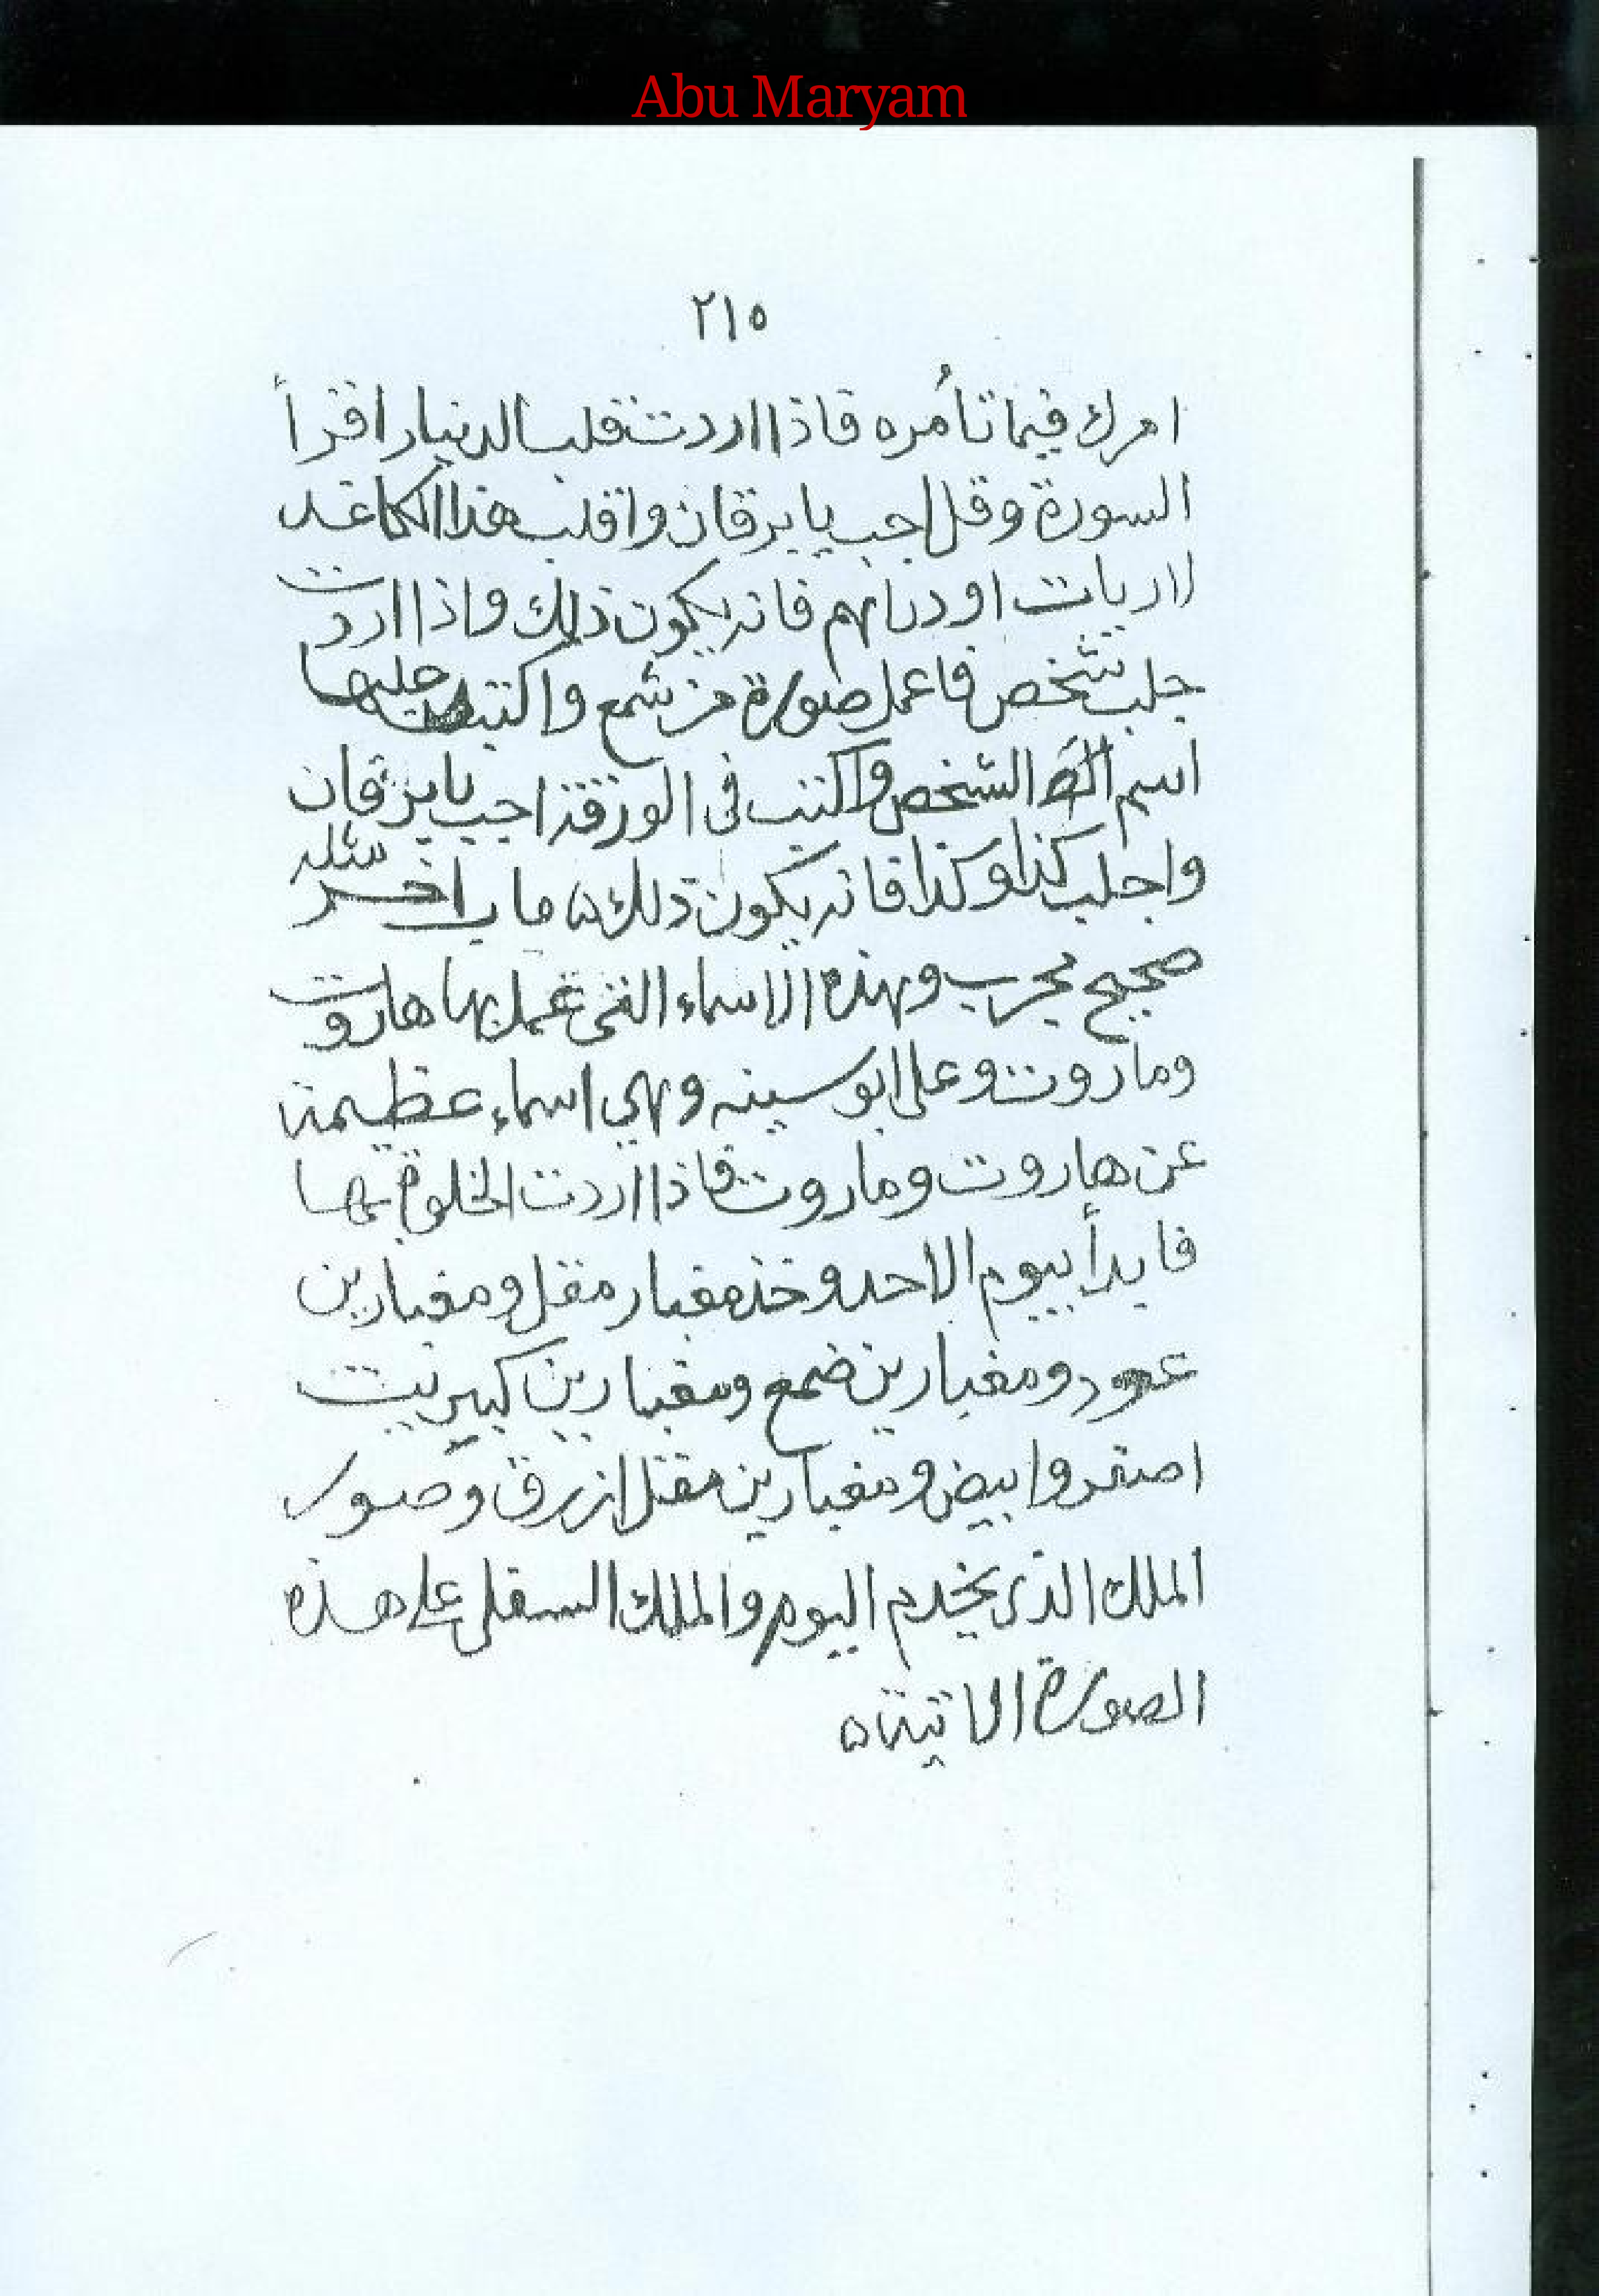 Abu Maryam
٢١٥
امرك فيما تأمُره فاذا اردت قلب الدينار اقرأ
السورة وقل اجب يا برقان واقلب هذا الكاغد
لاربات او دراهم فانه يكون ذلك واذا اردت
جلب شخص فاعمل صورة من شمع واكتب عليها
اسم الشخص واكتب فى الورقة اجب يا برقان
واجلب كذا وكذا فانه يكون ذلك ه باب اخر مثله
صحيح مجرب وهذه الاسماء التى عمل بها هاروت
وماروت وعلى ابو سينه وهي اسماء عظيمة
عن هاروت وماروت فاذا اردت الخلوة بها
فابدأ بيوم الاحد وخذ مغبار مقل ومغبارين
عود ومغبارين ضمع ومغبارين كبيريت
اصفر وابيض ومغبارين مقل ازرق وصور
الملك الذى يخدم اليوم والملك السفلى على هذه
الصورة الاتية ه